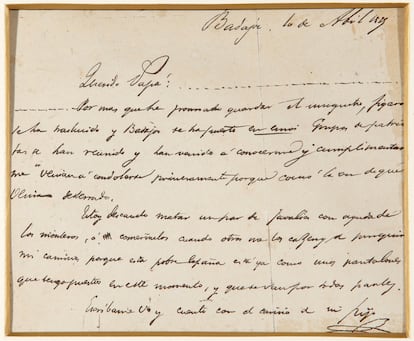 Badajoz 10 de Abril
Querido Papá:
Por mas que he procurado guardar el incognito, figaro
se ha traslucido y Badajoz se ha puesto en Grupos de patrio
tas se han reunido y han venido á conocerme y cumplimentar
me Olivan á primeramente porque la de que
Olivan desterrado.
Estoy deseando matar un par de javalies con ayuda de
los monteros, ó comermelos cuando otro me los
mi camino, porque esta pobre España está ya como unos pantalones
que tengo puestos en este momento, y que se van por todas partes.
Escribame Vd y cuente con el cariño de su hijo